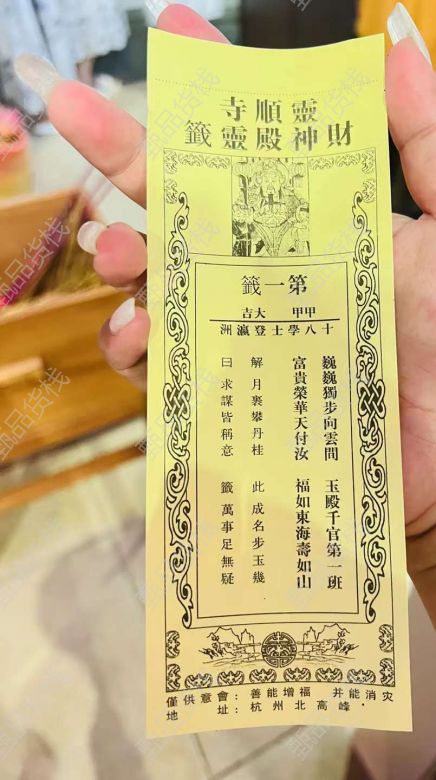 靈順寺
財神殿靈籤
第一籤
甲甲 大吉
十八學士登瀛洲
巍巍獨步向雲間 玉殿千官第一班
富貴榮華天付汝 福如東海壽如山
解 月裏攀丹桂 此 成名步玉幾
曰 求謀皆稱意 籤 萬事足無疑
僅供意會：善能增福 并能消灾
地 址：杭州北高峰
甄品货栈